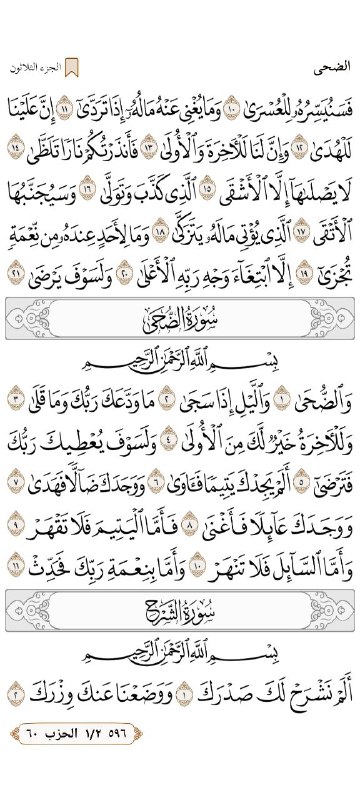 الضحى
الجزء الثلاثون
فَسَنُيَسِّرُهُۥ لِلْعُسْرَىٰ ١٠ وَمَا يُغْنِى عَنْهُ مَالُهُۥٓ إِذَا تَرَدَّىٰٓ ١١ إِنَّ عَلَيْنَا
لَلْهُدَىٰ ١٢ وَإِنَّ لَنَا لَلْـَٔاخِرَةَ وَٱلْأُولَىٰ ١٣ فَأَنذَرْتُكُمْ نَارًا تَلَظَّىٰ ١٤
لَا يَصْلَىٰهَآ إِلَّا ٱلْأَشْقَى ١٥ ٱلَّذِى كَذَّبَ وَتَوَلَّىٰ ١٦ وَسَيُجَنَّبُهَا
ٱلْأَتْقَى ١٧ ٱلَّذِى يُؤْتِى مَالَهُۥ يَتَزَكَّىٰ ١٨ وَمَا لِأَحَدٍ عِندَهُۥ مِن نِّعْمَةٍ
تُجْزَىٰٓ ١٩ إِلَّا ٱبْتِغَآءَ وَجْهِ رَبِّهِ ٱلْأَعْلَىٰ ٢٠ وَلَسَوْفَ يَرْضَىٰ ٢١
سُورَةُ الضُّحَىٰ
بِسْمِ ٱللَّهِ ٱلرَّحْمَٰنِ ٱلرَّحِيمِ
وَٱلضُّحَىٰ ١ وَٱلَّيْلِ إِذَا سَجَىٰ ٢ مَا وَدَّعَكَ رَبُّكَ وَمَا قَلَىٰ ٣
وَلَلْـَٔاخِرَةُ خَيْرٌ لَّكَ مِنَ ٱلْأُولَىٰ ٤ وَلَسَوْفَ يُعْطِيكَ رَبُّكَ
فَتَرْضَىٰٓ ٥ أَلَمْ يَجِدْكَ يَتِيمًا فَـَٔاوَىٰ ٦ وَوَجَدَكَ ضَآلًّا فَهَدَىٰ ٧
وَوَجَدَكَ عَآئِلًا فَأَغْنَىٰ ٨ فَأَمَّا ٱلْيَتِيمَ فَلَا تَقْهَرْ ٩
وَأَمَّا ٱلسَّآئِلَ فَلَا تَنْهَرْ ١٠ وَأَمَّا بِنِعْمَةِ رَبِّكَ فَحَدِّثْ ١١
سُورَةُ الشَّرْحِ
بِسْمِ ٱللَّهِ ٱلرَّحْمَٰنِ ٱلرَّحِيمِ
أَلَمْ نَشْرَحْ لَكَ صَدْرَكَ ١ وَوَضَعْنَا عَنكَ وِزْرَكَ ٢
٥٩٦ ١/٢ الحزب ٦٠